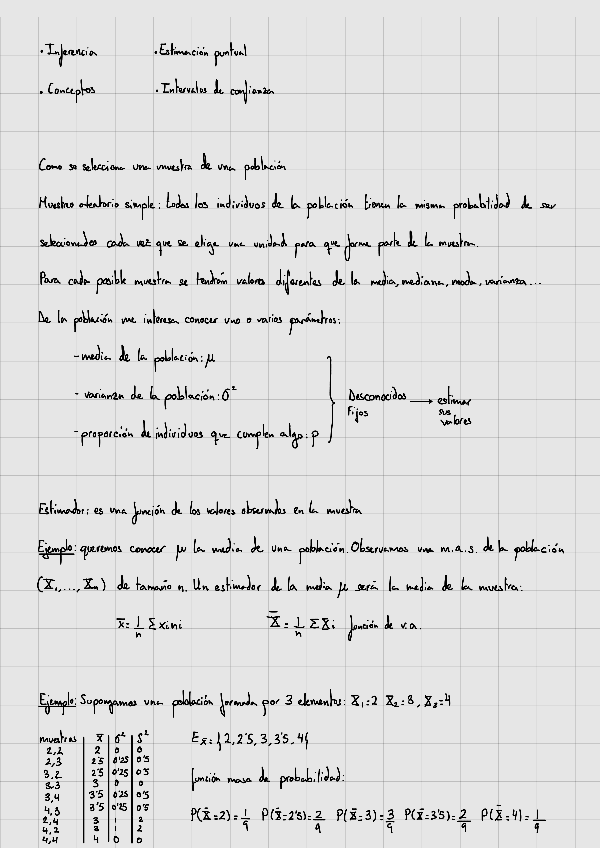 · Inferencia · Estimación puntual
· Conceptos · Intervalos de confianza
Como se selecciona una muestra de una población
Muestreo aleatorio simple: todos los individuos de la población tienen la misma probabilidad de ser
seleccionados cada vez que se elige una unidad para que forme parte de la muestra.
Para cada posible muestra se tendrán valores diferentes de la media, mediana, moda, varianza...
De la población me interesa conocer uno o varios parámetros:
- media de la población: μ
- varianza de la población: σ²
- proporción de individuos que cumplen algo: p
Desconocidos → estimar
Fijos sus
valores
Estimador: es una función de los valores observados en la muestra
Ejemplo: queremos conocer μ la media de una población. Observamos una m.a.s. de la población
(X₁,..., Xₙ) de tamaño n. Un estimador de la media μ será la media de la muestra:
x̄ = 1/n Σ xᵢnᵢ X̄ = 1/n Σ Xᵢ función de v.a.
Ejemplo: Supongamos una población formada por 3 elementos: X₁=2 X₂=3, X₃=4
muestras | x̄ | σ² | S²
2,2 | 2 | 0 | 0
2,3 | 2'5 | 0'25 | 0'5
3,2 | 2'5 | 0'25 | 0'5
3,3 | 3 | 0 | 0
3,4 | 3'5 | 0'25 | 0'5
4,3 | 3'5 | 0'25 | 0'5
2,4 | 3 | 1 | 2
4,2 | 3 | 1 | 2
4,4 | 4 | 0 | 0
E x̄ = {2, 2'5, 3, 3'5, 4}
función masa de probabilidad:
P(x̄=2) = 1/9 P(x̄=2'5) = 2/9 P(x̄=3) = 3/9 P(x̄=3'5) = 2/9 P(x̄=4) = 1/9